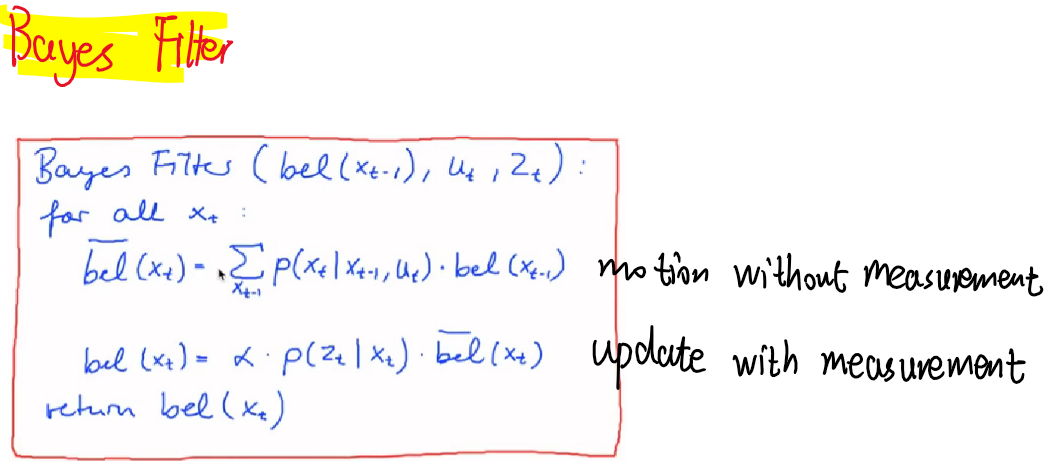 Bayes Filter
Bayes Filter ( bel(x_{t-1}), u_t, z_t ) :
for all x_t :
\overline{bel}(x_t) = \sum_{x_{t-1}} p(x_t | x_{t-1}, u_t) · bel(x_{t-1}) motion without measurement
bel(x_t) = α · p(z_t | x_t) · \overline{bel}(x_t) update with measurement
return bel(x_t)